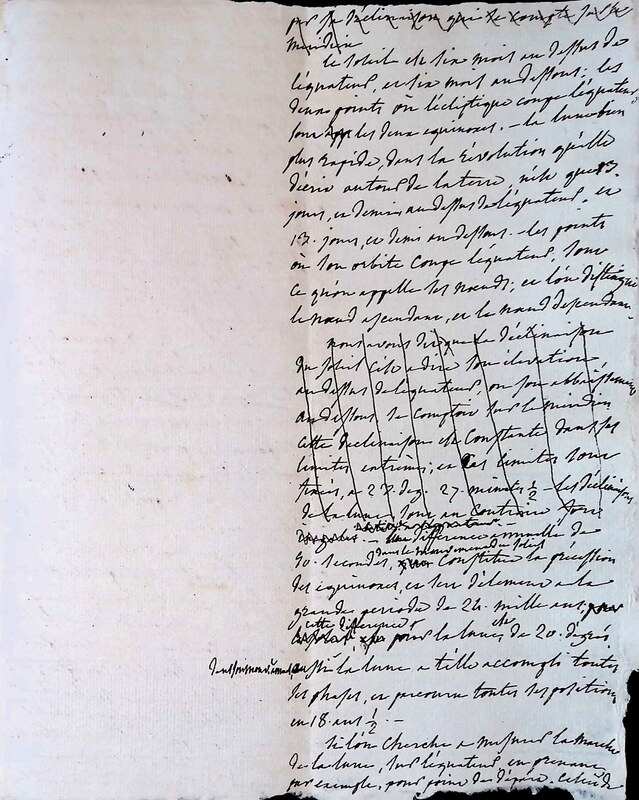 par sa déclinaison qui se compte sur le
méridien
le soleil est six mois au dessus de
l'équateur, et six mois au dessous; les
deux points où l'écliptique coupe l'équateur
sont les deux equinoxes. - la lune bien
plus rapide, dans la révolution qu'elle
décrit autour de la terre, n'est que 13.
jours, et demi au dessus de l'équateur, et
13. jours, et demi au dessous. - les points
où son orbite coupe l'équateur, sont
ce qu'on appelle ses nœuds; et l'on distingue
le nœud ascendant, et le nœud descendant.
nous avons dit que la déclinaison
du soleil c'est a dire son élévation
au dessus de l'équateur, ou son abbaissement
au dessous se comptoit sur le méridien
cette declinaison est constante dans ses
limites extrêmes; et ces limites sont
fixées, a 23. deg. 27. minutes ½ - les déclinaisons
de la lune, sont au contraire fort
- une différence annuelle de
dans le mouvement du soleil
50. secondes, constitue la precession
des equinoxes, et sert d'élément a la
grande periode de 26. mille ans;
cette différence est
pour la lune, de 20. degrés
aussi la lune a t'elle accompli toutes
ses phases, et parcouru toutes ses positions
en 18. ans ½. -
si l'on cherche a mesurer la marche
de la lune, sur l'équateur en prenant
par exemple, pour point de départ, celui de